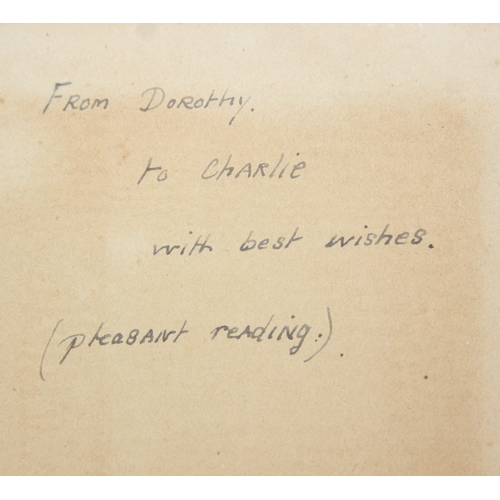 From Dorothy.
to Charlie
with best wishes.
(pleasant reading.).